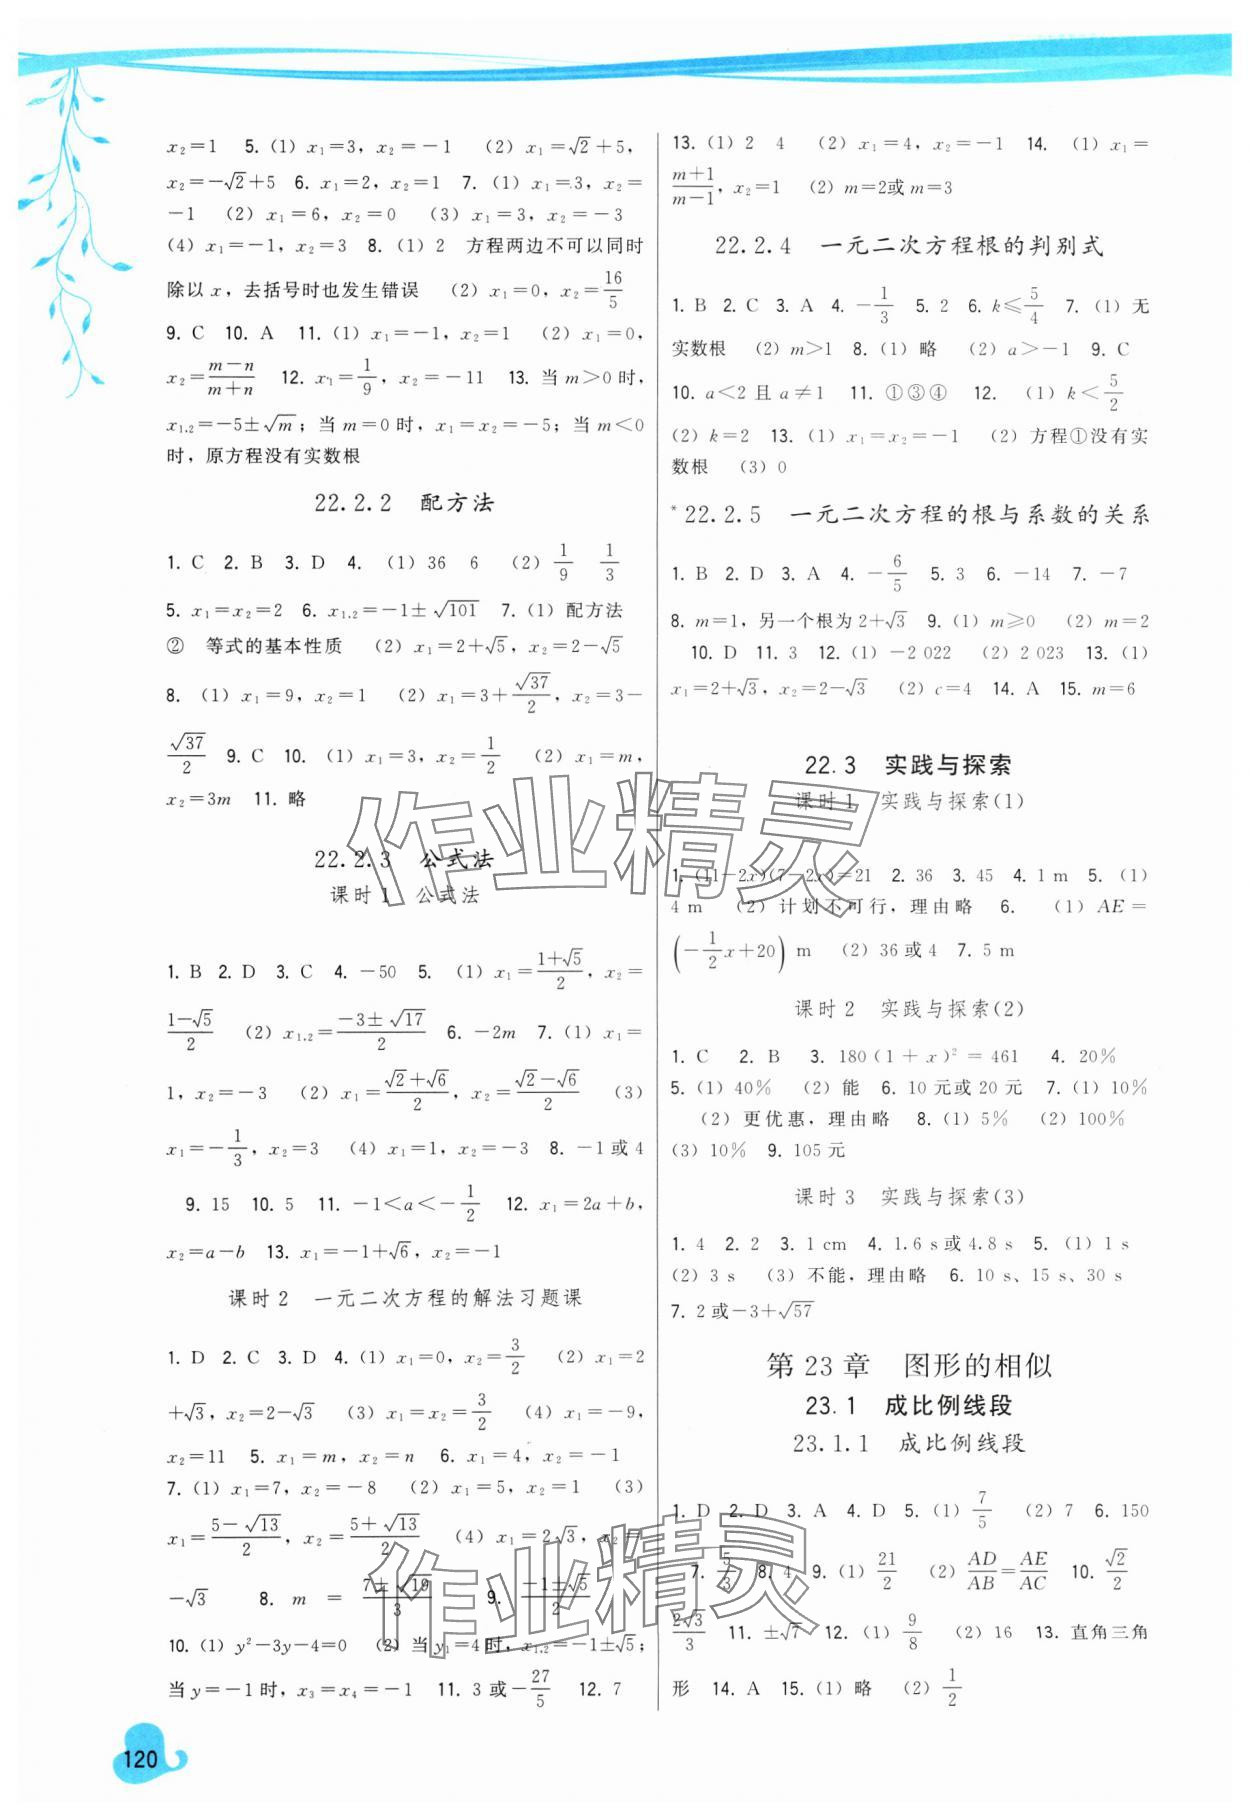 x₂=1　5. (1) x₁=3, x₂=-1　(2) x₁=√2+5,
x₂=-√2+5　6. x₁=2, x₂=1　7. (1) x₁=3, x₂=
-1　(2) x₁=6, x₂=0　(3) x₁=3, x₂=-3
(4) x₁=-1, x₂=3　8. (1) 2　方程两边不可以同时
除以 x, 去括号时也发生错误　(2) x₁=0, x₂=16/5
9. C　10. A　11. (1) x₁=-1, x₂=1　(2) x₁=0,
x₂=(m-n)/(m+n)　12. x₁=1/9, x₂=-11　13. 当 m>0 时,
x₁.₂=-5±√m; 当 m=0 时, x₁=x₂=-5; 当 m<0
时, 原方程没有实数根
22.2.2　配方法
1. C　2. B　3. D　4. (1) 36　6　(2) 1/9　1/3
5. x₁=x₂=2　6. x₁.₂=-1±√101　7. (1) 配方法
②　等式的基本性质　(2) x₁=2+√5, x₂=2-√5
8. (1) x₁=9, x₂=1　(2) x₁=3+√37/2, x₂=3-
√37/2　9. C　10. (1) x₁=3, x₂=1/2　(2) x₁=m,
x₂=3m　11. 略
22.2.3　公式法
课时 1　公式法
1. B　2. D　3. C　4. -50　5. (1) x₁=(1+√5)/2, x₂=
(1-√5)/2　(2) x₁.₂=(-3±√17)/2　6. -2m　7. (1) x₁=
1, x₂=-3　(2) x₁=(√2+√6)/2, x₂=(√2-√6)/2　(3)
x₁=-1/3, x₂=3　(4) x₁=1, x₂=-3　8. -1或4
9. 15　10. 5　11. -1<a<-1/2　12. x₁=2a+b,
x₂=a-b　13. x₁=-1+√6, x₂=-1
课时 2　一元二次方程的解法习题课
1. D　2. C　3. D　4. (1) x₁=0, x₂=3/2　(2) x₁=2
+√3, x₂=2-√3　(3) x₁=x₂=3/2　(4) x₁=-9,
x₂=11　5. x₁=m, x₂=n　6. x₁=4, x₂=-1
7. (1) x₁=7, x₂=-8　(2) x₁=5, x₂=1　(3)
x₁=(5-√13)/2, x₂=(5+√13)/2　(4) x₁=2√3, x₂=
-√3　8. m=(7±√19)/3　9. (-1±√5)/2
10. (1) y²-3y-4=0　(2) 当 y₁=4 时, x₁.₂=-1±√5;
当 y=-1 时, x₃=x₄=-1　11. 3 或-27/5　12. 7
13. (1) 2　4　(2) x₁=4, x₂=-1　14. (1) x₁=
(m+1)/(m-1), x₂=1　(2) m=2或 m=3
22.2.4　一元二次方程根的判别式
1. B　2. C　3. A　4. -1/3　5. 2　6. k≤5/4　7. (1) 无
实数根　(2) m>1　8. (1) 略　(2) a>-1　9. C
10. a<2 且 a≠1　11. ①③④　12. (1) k<5/2
(2) k=2　13. (1) x₁=x₂=-1　(2) 方程①没有实
数根　(3) 0
*22.2.5　一元二次方程的根与系数的关系
1. B　2. D　3. A　4. -6/5　5. 3　6. -14　7. -7
8. m=1, 另一个根为 2+√3　9. (1) m≥0　(2) m=2
10. D　11. 3　12. (1) -2 022　(2) 2 023　13. (1)
x₁=2+√3, x₂=2-√3　(2) c=4　14. A　15. m=6
22.3　实践与探索
课时 1　实践与探索(1)
1. (11-2x)(7-2x)=21　2. 36　3. 45　4. 1 m　5. (1)
4 m　(2) 计划不可行, 理由略　6. (1) AE=
(-1/2x+20) m　(2) 36或4　7. 5 m
课时 2　实践与探索(2)
1. C　2. B　3. 180(1+x)²=461　4. 20%
5. (1) 40%　(2) 能　6. 10 元或 20 元　7. (1) 10%
(2) 更优惠, 理由略　8. (1) 5%　(2) 100%
(3) 10%　9. 105 元
课时 3　实践与探索(3)
1. 4　2. 2　3. 1 cm　4. 1.6 s或4.8 s　5. (1) 1 s
(2) 3 s　(3) 不能, 理由略　6. 10 s、15 s、30 s
7. 2 或-3+√57
第 23 章　图形的相似
23.1　成比例线段
23.1.1　成比例线段
1. D　2. D　3. A　4. D　5. (1) 7/5　(2) 7　6. 150
7. 5/3　8. 4　9. (1) 21/2　(2) AD/AB=AE/AC　10. √2/2
2√3/3　11. ±√7　12. (1) 9/8　(2) 16　13. 直角三角
形　14. A　15. (1) 略　(2) 1/2
作业精灵
作业精灵
120